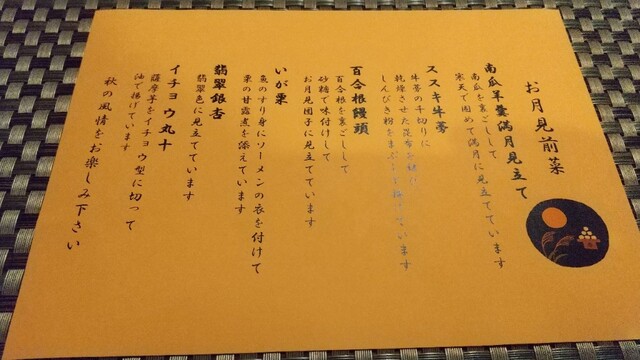 お月見前菜
南瓜羊羹満月見立て
南瓜を裏ごしして
寒天で固めて満月に見立てています
ススキ牛蒡
牛蒡の千切りに
乾燥させた昆布を
しんびき粉をまぶし揚げています
百合根饅頭
百合根を裏ごしして
砂糖で味付けして
お月見団子に見立てています
いが栗
魚のすり身にソーメンの衣を付けて
栗の甘露煮を添えています
翡翠銀杏
翡翠色に見立てています
イチョウ丸十
薩摩芋をイチョウ型に切って
油で揚げています
秋の風情をお楽しみ下さい